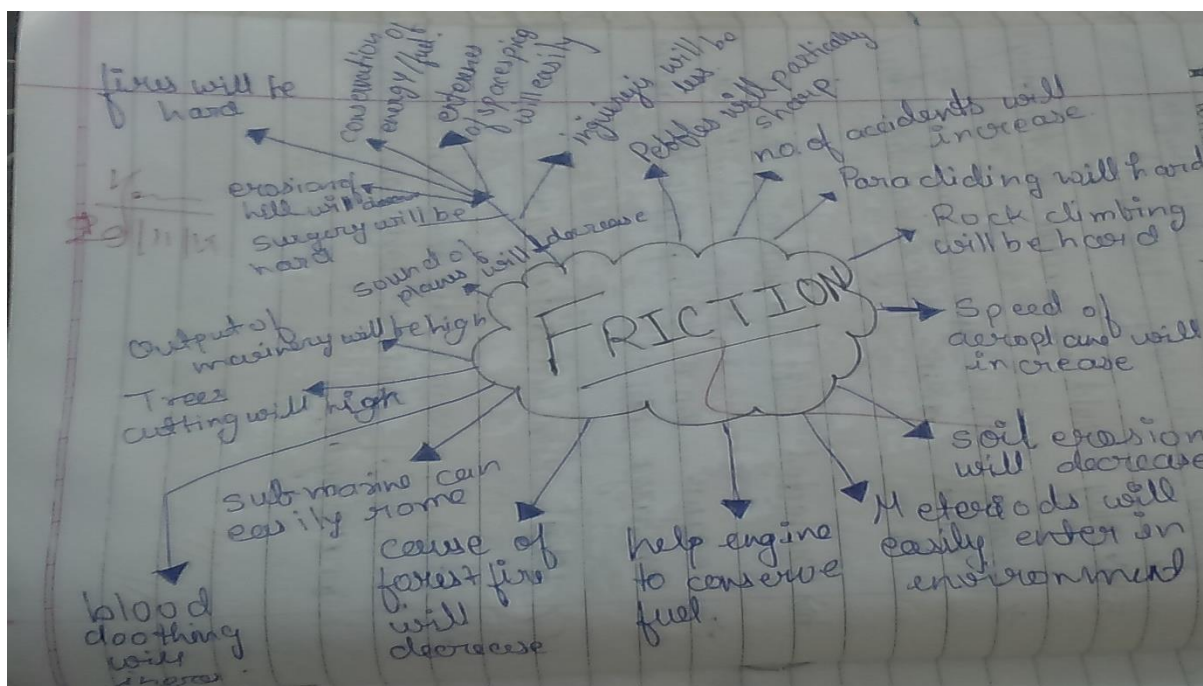 fires will be
hard
conservation of
energy/fuel.
entrance
of spaceship
will easily
ingiureis will be
less.
Pebbles will particularly
sharp.
no. of accidents will
increase.
Para cliding will hard
Rock climbing
will be hard
Speed of
aeroplane will
increase
soil erosion
will decrease
Meteriods will
easily enter in
environment
help engine
to conserve
fuel.
cause of
forest fire
will
decrease
submarine can
easily rome
blood
cloothing
will
Trees
cutting will high
Output of
mavinery will be high
sound of
planes will decrease
erosion of
hill will
surgery will be
hard
FRICTION